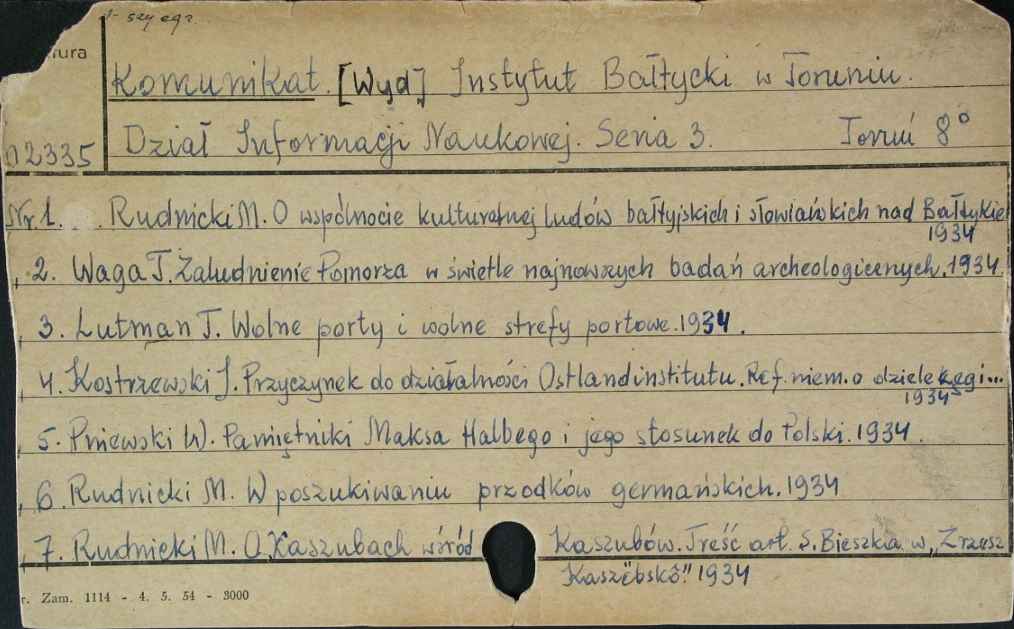 szy egz.
ura
Komunikat. [Wyd] Instytut Bałtycki w Toruniu.
02335 Dział Informacji Naukowej. Seria 3. Toruń 8°
Nr 1. Rudnicki M. O wspólnocie kulturalnej ludów bałtyjskich i słowiańskich nad Bałtykie
1934
„ 2. Waga T. Zaludnienie Pomorza w świetle najnowszych badań archeologicznych. 1934.
„ 3. Lutman T. Wolne porty i wolne strefy portowe. 1934.
„ 4. Kostrzewski J. Przyczynek do działalności Ostlandinstitutu. Ref. niem. o dziele
1934
„ 5. Pniewski W. Pamiętniki Maksa Halbego i jego stosunek do Polski. 1934.
„ 6. Rudnicki M. W poszukiwaniu przodków germańskich. 1934
„ 7. Rudnicki M. O Kaszubach wśród Kaszubów. Treść art. S. Bieszkia w „Zrzesz
Kaszëbskô". 1934
r. Zam. 1114 - 4. 5. 54 - 3000